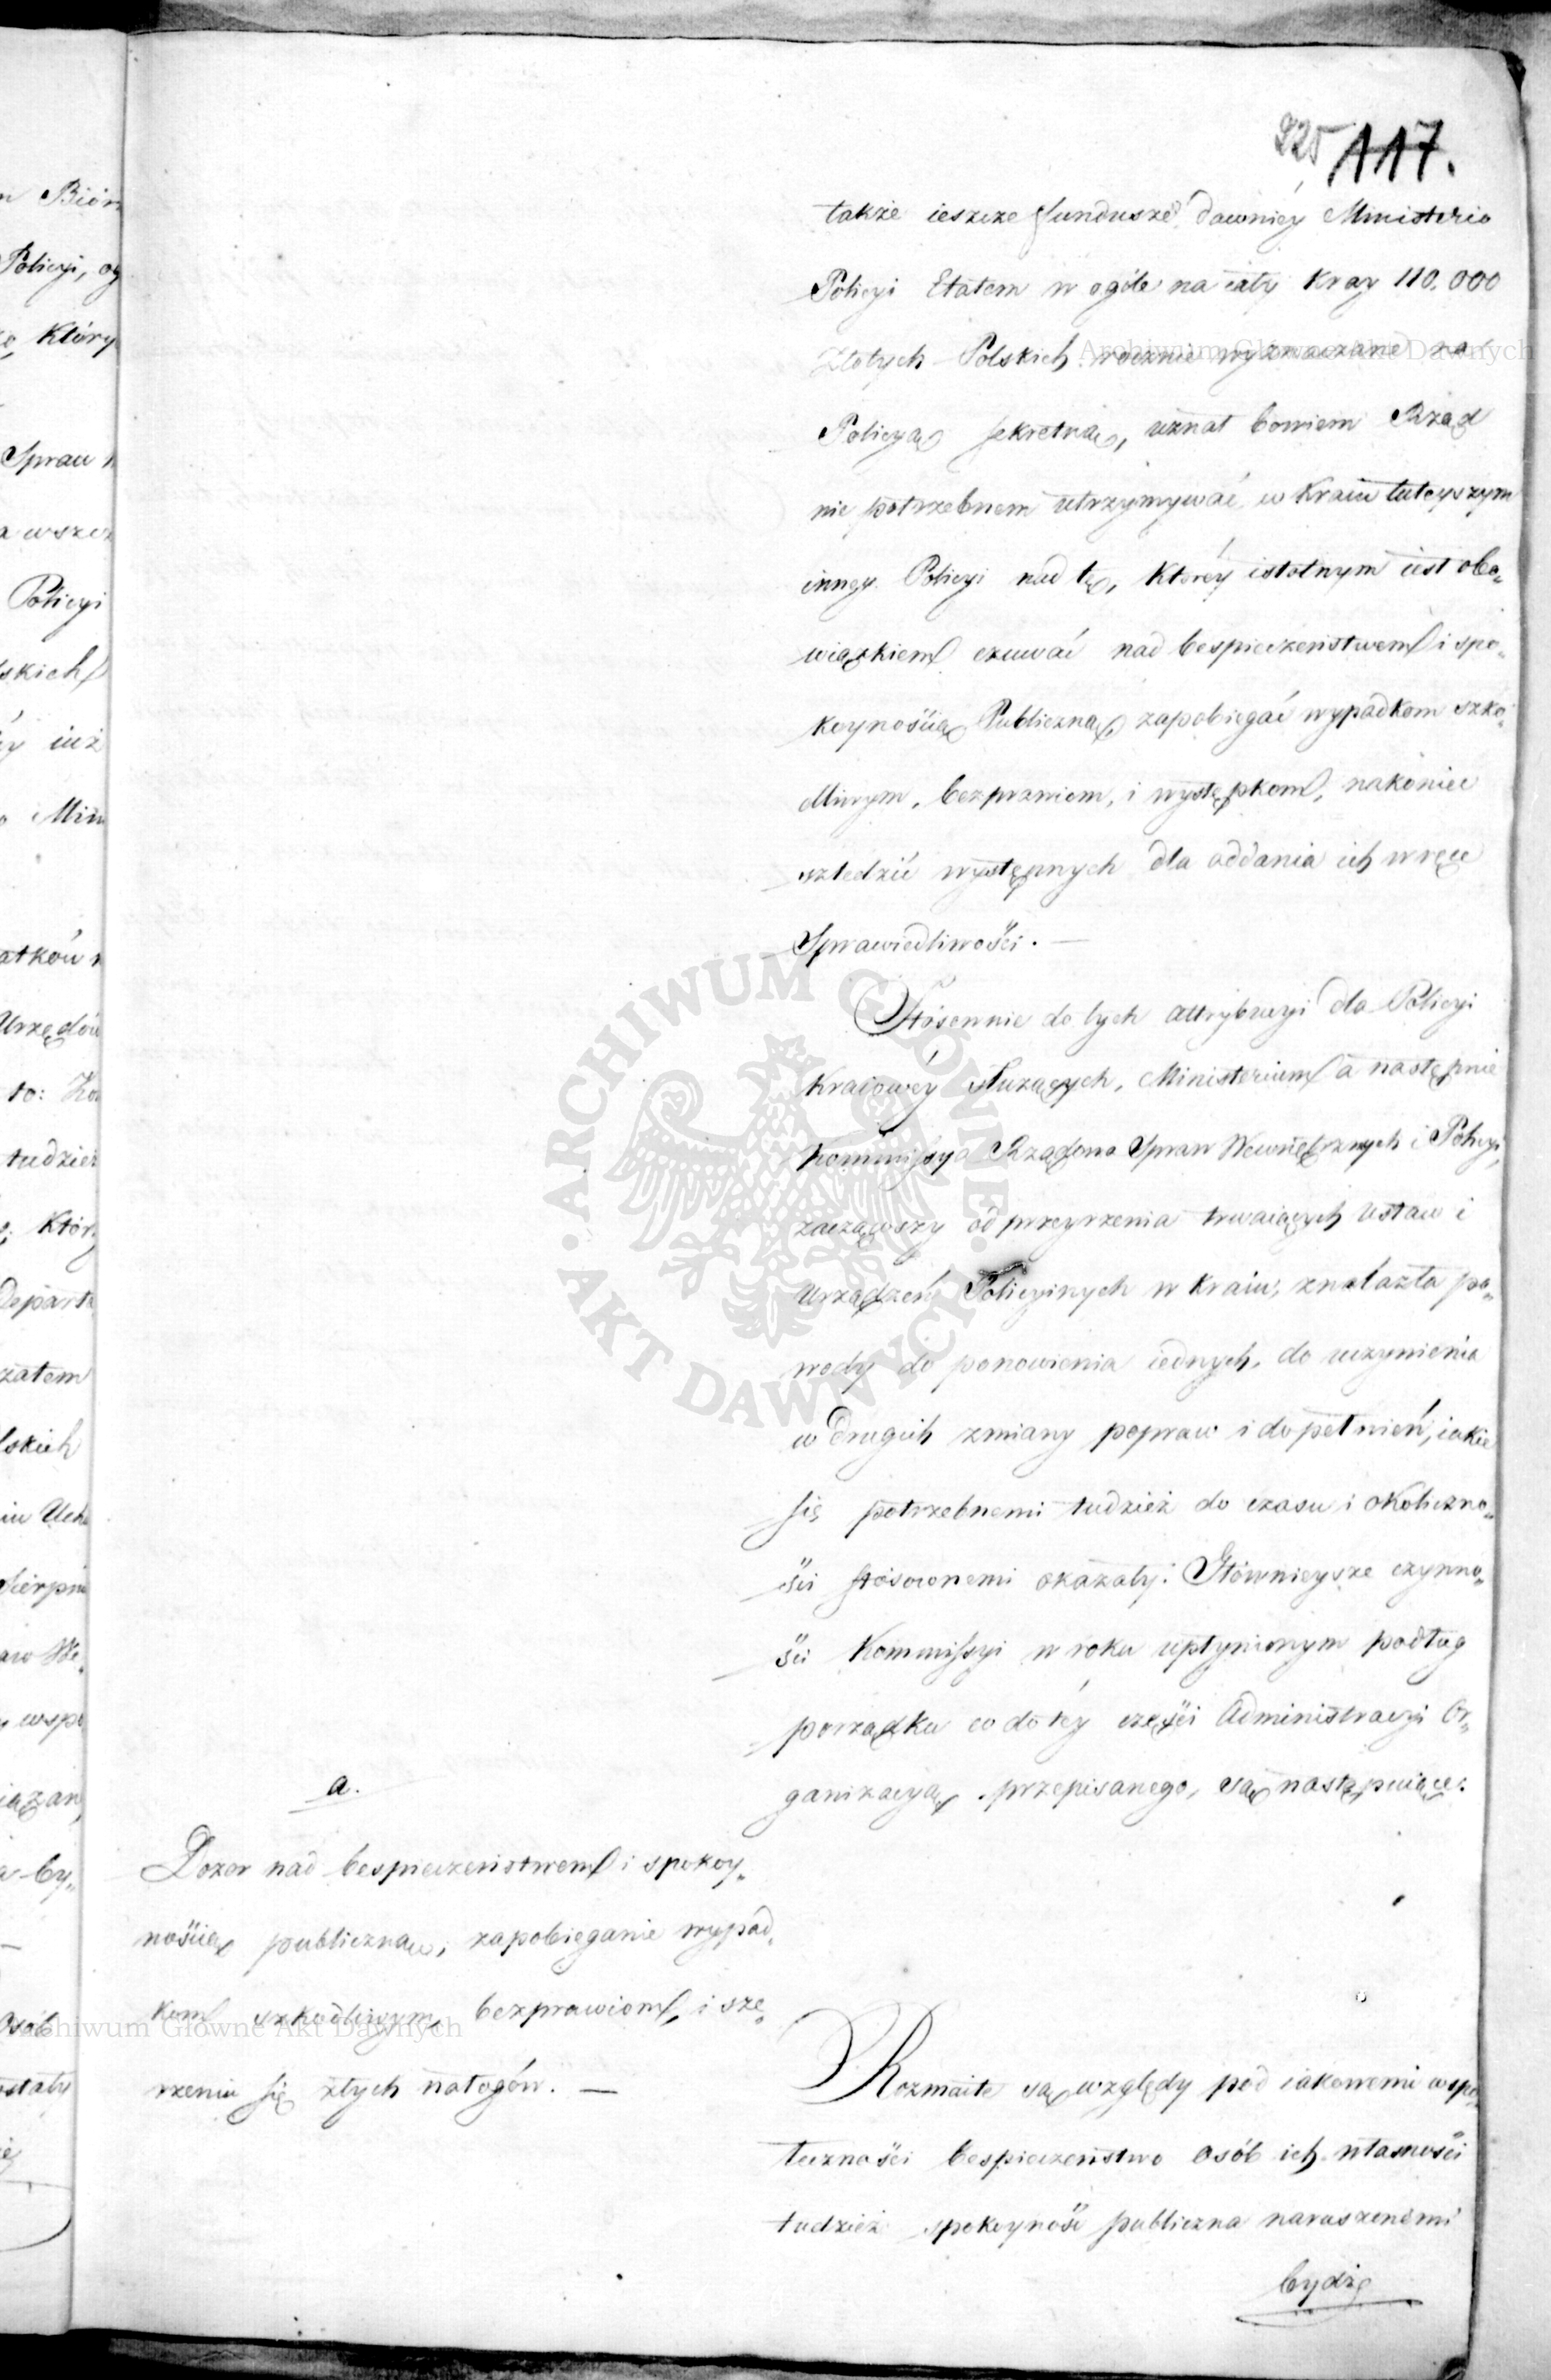 225 117.
także ieszcze fundusze dawniéy Ministerio
Policyi Etatem w ogóle na cały Kray 110,000
Złotych Polskich rocznie wyznaczane na
Policyą sekretną, uznał bowiem Rząd
nie potrzebnem utrzymywać w Kraiu tuteyszym
innéy Policyi nad tę, któréy istotnym iest obo„
wiązkiem czuwać nad bespieczeństwem i spo„
koynością Publiczną, zapobiegać wypadkom szko„
dliwym, bezprawiom, i występkom, nakoniec
szledzić występnych dla oddania ich w ręce
Sprawiedliwości. —
Stósownie do tych attrybucyi dla Policyi
Kraiowéy służących, Ministerium a następnie
Kommissya Rządowa Spraw Wewnętrznych i Policyi,
zacząwszy od przeyrzenia trwaiących Ustaw i
Urządzeń Policyinych w Kraiu, znalazła po„
wody do ponowienia iednych, do uczynienia
w drugich zmiany popraw i dopełnień, iakie
się potrzebnemi tudzież do czasu i okoliczno„
ści stósownemi okazały. Głównieysze czynno„
ści Kommissyi w roku upłynionym podług
porządku co do téy części Administracyi Or„
ganizacyą przepisanego, są następuiące:
a.
Dozor nad bespieczeństwem i spokoy„
nością publiczną, zapobieganie wypad„
kom szkodliwym, bezprawiom, i sze„
rzeniu się złych nałogów. —
Rozmaite są względy pod iakowemi w spo„
łeczności bespieczeństwo Osób ich własności
tudzież spokoyność publiczna naruszonemi
bydź
Archiwum Główne Akt Dawnych
Archiwum Główne Akt Dawnych
· ARCHIWUM GŁÓWNE · AKT DAWNYCH
n Biór
Policyi, og
Który
Spraw
a wszcz
Policyi
lskich
iuż
Min
atków
Urzędów
to: Ko
tudzież
Któr
Departa
zatem
lskich
Sierpnia
w We„
wspo
iązan
by„
Osób
ostały